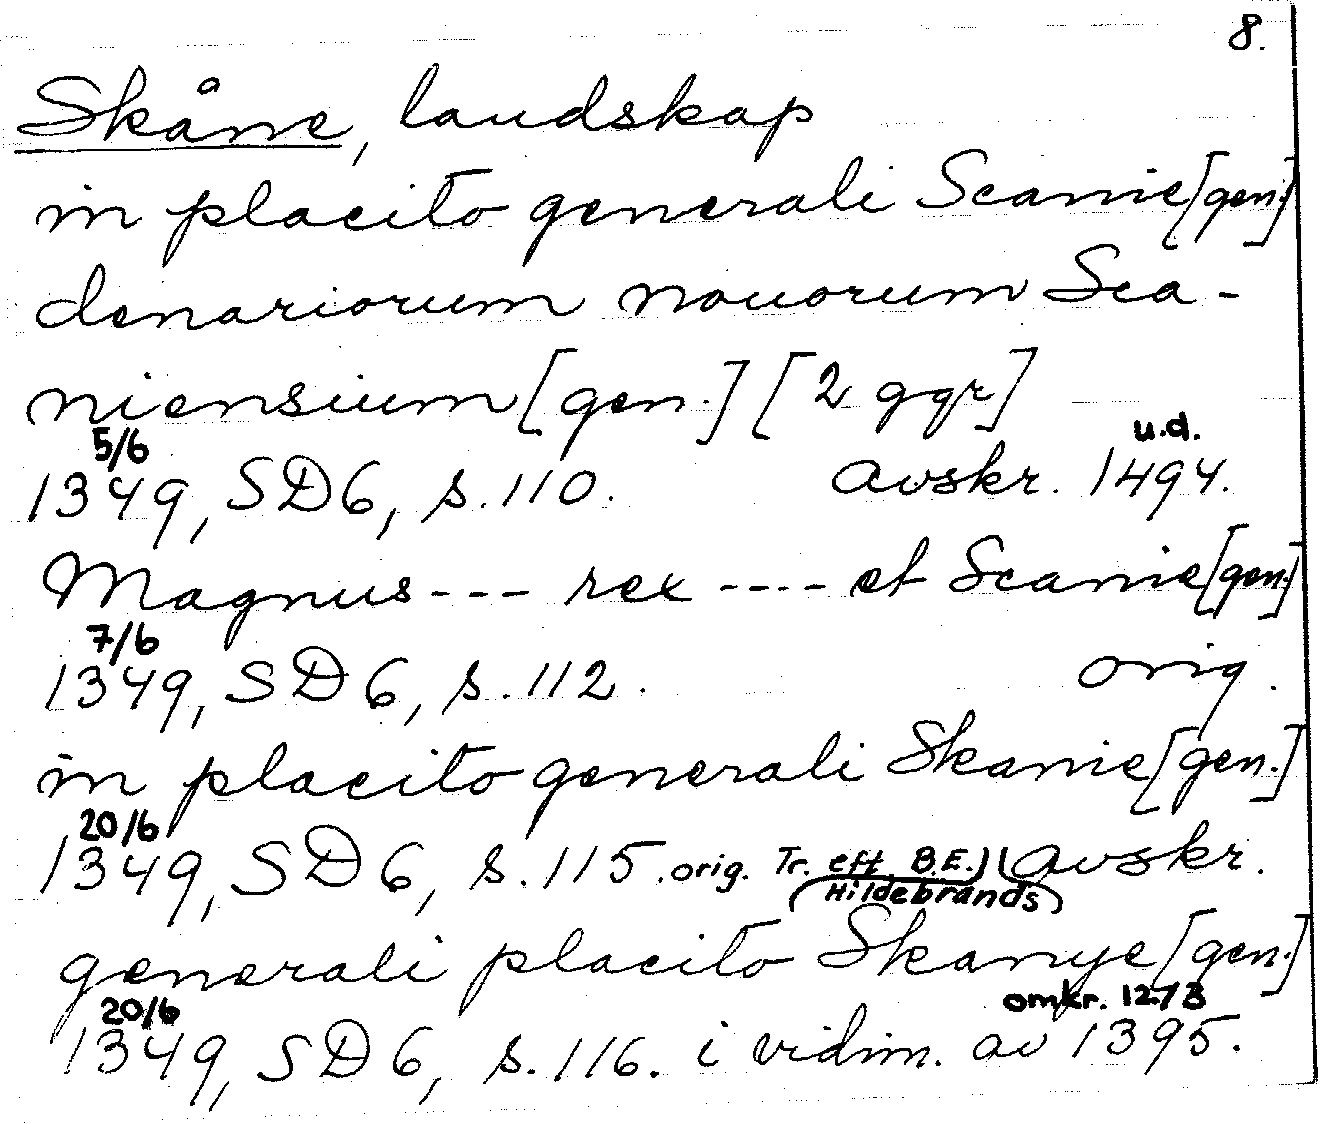 8.
Skåne, landskap
in placito generali Scanie [gen.]
denariorum nouorum Sca-
niensium [gen.] [2 ggr]
5/6 u.d.
1349, SD 6, s. 110. Avskr. 1494.
Magnus --- rex ---- et Scanie [gen.]
7/6
1349, SD 6, s. 112. orig.
in placito generali Skanie [gen.]
20/6
1349, SD 6, s. 115. orig. Tr. eft. B.E.) (Avskr.
(Hildebrands)
generali placito Skanye [gen.]
20/6 omkr. 12/3
1349, SD 6, s. 116. i vidim. av 1395.